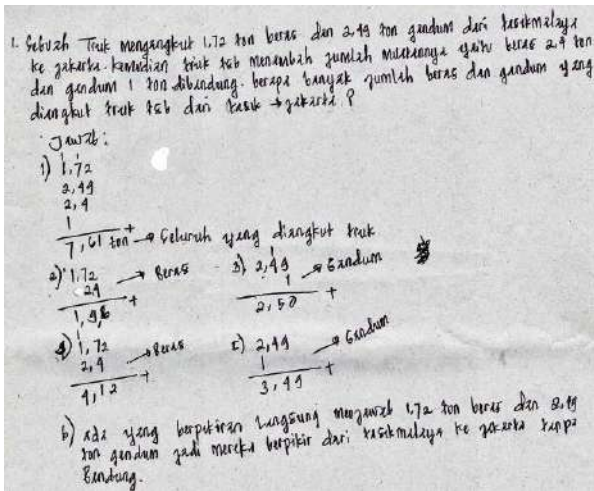 1. Sebuah Truk mengangkut 1,72 ton beras dan 2,49 ton gandum dari tasikmalaya
ke jakarta. kemudian truk tsb menambah jumlah muatannya yaitu beras 2,4 ton
dan gandum 1 ton dibandung. berapa banyak jumlah beras dan gandum yang
diangkut truk tsb dari tasik → jakarta ?
Jawab :
1) 1,72
2,49
2,4
1 +
7,61 ton → Seluruh yang diangkut truk
2) 1,72 → Beras
24 +
1,96
3) 2,49 → Gandum
1 +
2,50
4) 1,72 → Beras
2,4 +
4,12
5) 2,49 → Gandum
1 +
3,49
6) ada yang berpikiran Langsung menjawab 1,72 ton beras dan 2,49
ton gandum jadi mereka berpikir dari tasikmalaya ke jakarta tanpa
Bandung.